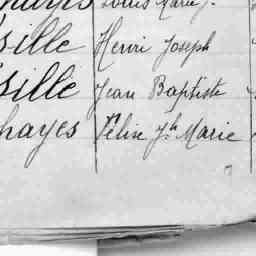 Louis Marie J.
sille Henri Joseph
sille Jean Baptiste
hayes Félix Jh Marie